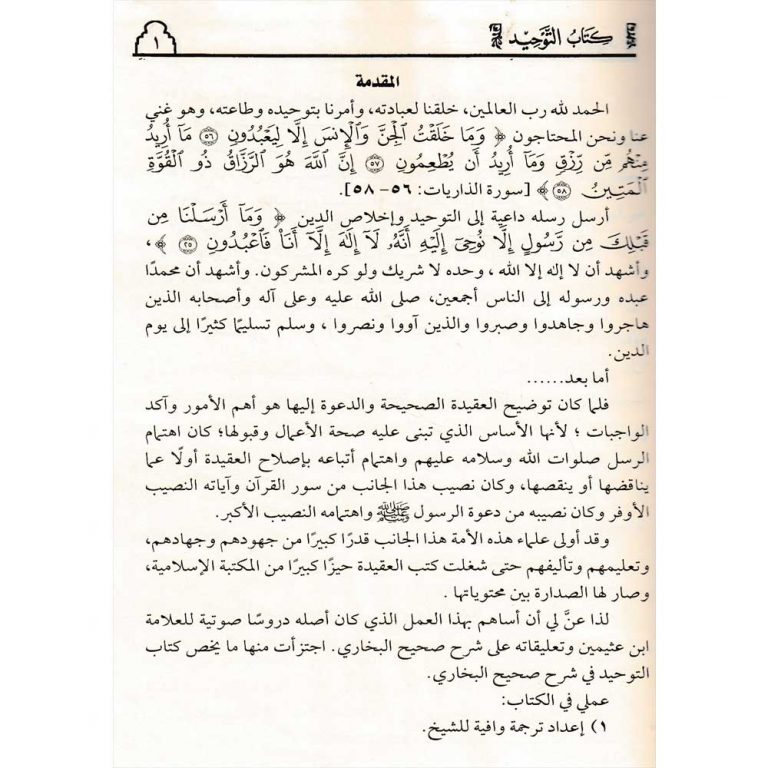 كِتَابُ التَّوْحِيد
١
المقدمة
الحمد لله رب العالمين، خلقنا لعبادته، وأمرنا بتوحيده وطاعته، وهو غني
عنا ونحن المحتاجون ﴿ وَمَا خَلَقْتُ ٱلْجِنَّ وَٱلْإِنسَ إِلَّا لِيَعْبُدُونِ ۝٥٦ مَآ أُرِيدُ
مِنْهُم مِّن رِّزْقٍ وَمَآ أُرِيدُ أَن يُطْعِمُونِ ۝٥٧ إِنَّ ٱللَّهَ هُوَ ٱلرَّزَّاقُ ذُو ٱلْقُوَّةِ
ٱلْمَتِينُ ۝٥٨ ﴾ [سورة الذاريات: ٥٦- ٥٨].
أرسل رسله داعية إلى التوحيد وإخلاص الدين ﴿ وَمَآ أَرْسَلْنَا مِن
قَبْلِكَ مِن رَّسُولٍ إِلَّا نُوحِىٓ إِلَيْهِ أَنَّهُۥ لَآ إِلَٰهَ إِلَّآ أَنَا۠ فَٱعْبُدُونِ ۝٢٥ ﴾ ،
وأشهد أن لا إله إلا الله ، وحده لا شريك ولو كره المشركون. وأشهد أن محمدًا
عبده ورسوله إلى الناس أجمعين، صلى الله عليه وعلى آله وأصحابه الذين
هاجروا وجاهدوا وصبروا والذين آووا ونصروا ، وسلم تسليمًا كثيرًا إلى يوم
الدين.
أما بعد......
فلما كان توضيح العقيدة الصحيحة والدعوة إليها هو أهم الأمور وآكد
الواجبات ؛ لأنها الأساس الذي تبنى عليه صحة الأعمال وقبولها؛ كان اهتمام
الرسل صلوات الله وسلامه عليهم واهتمام أتباعه بإصلاح العقيدة أولًا عما
يناقضها أو ينقصها، وكان نصيب هذا الجانب من سور القرآن وآياته النصيب
الأوفر وكان نصيبه من دعوة الرسول ﷺ واهتمامه النصيب الأكبر.
وقد أولى علماء هذه الأمة هذا الجانب قدرًا كبيرًا من جهودهم وجهادهم،
وتعليمهم وتأليفهم حتى شغلت كتب العقيدة حيزًا كبيرًا من المكتبة الإسلامية،
وصار لها الصدارة بين محتوياتها .
لذا عنَّ لي أن أساهم بهذا العمل الذي كان أصله دروسًا صوتية للعلامة
ابن عثيمين وتعليقاته على شرح صحيح البخاري. اجتزأت منها ما يخص كتاب
التوحيد في شرح صحيح البخاري.
عملي في الكتاب:
١) إعداد ترجمة وافية للشيخ.